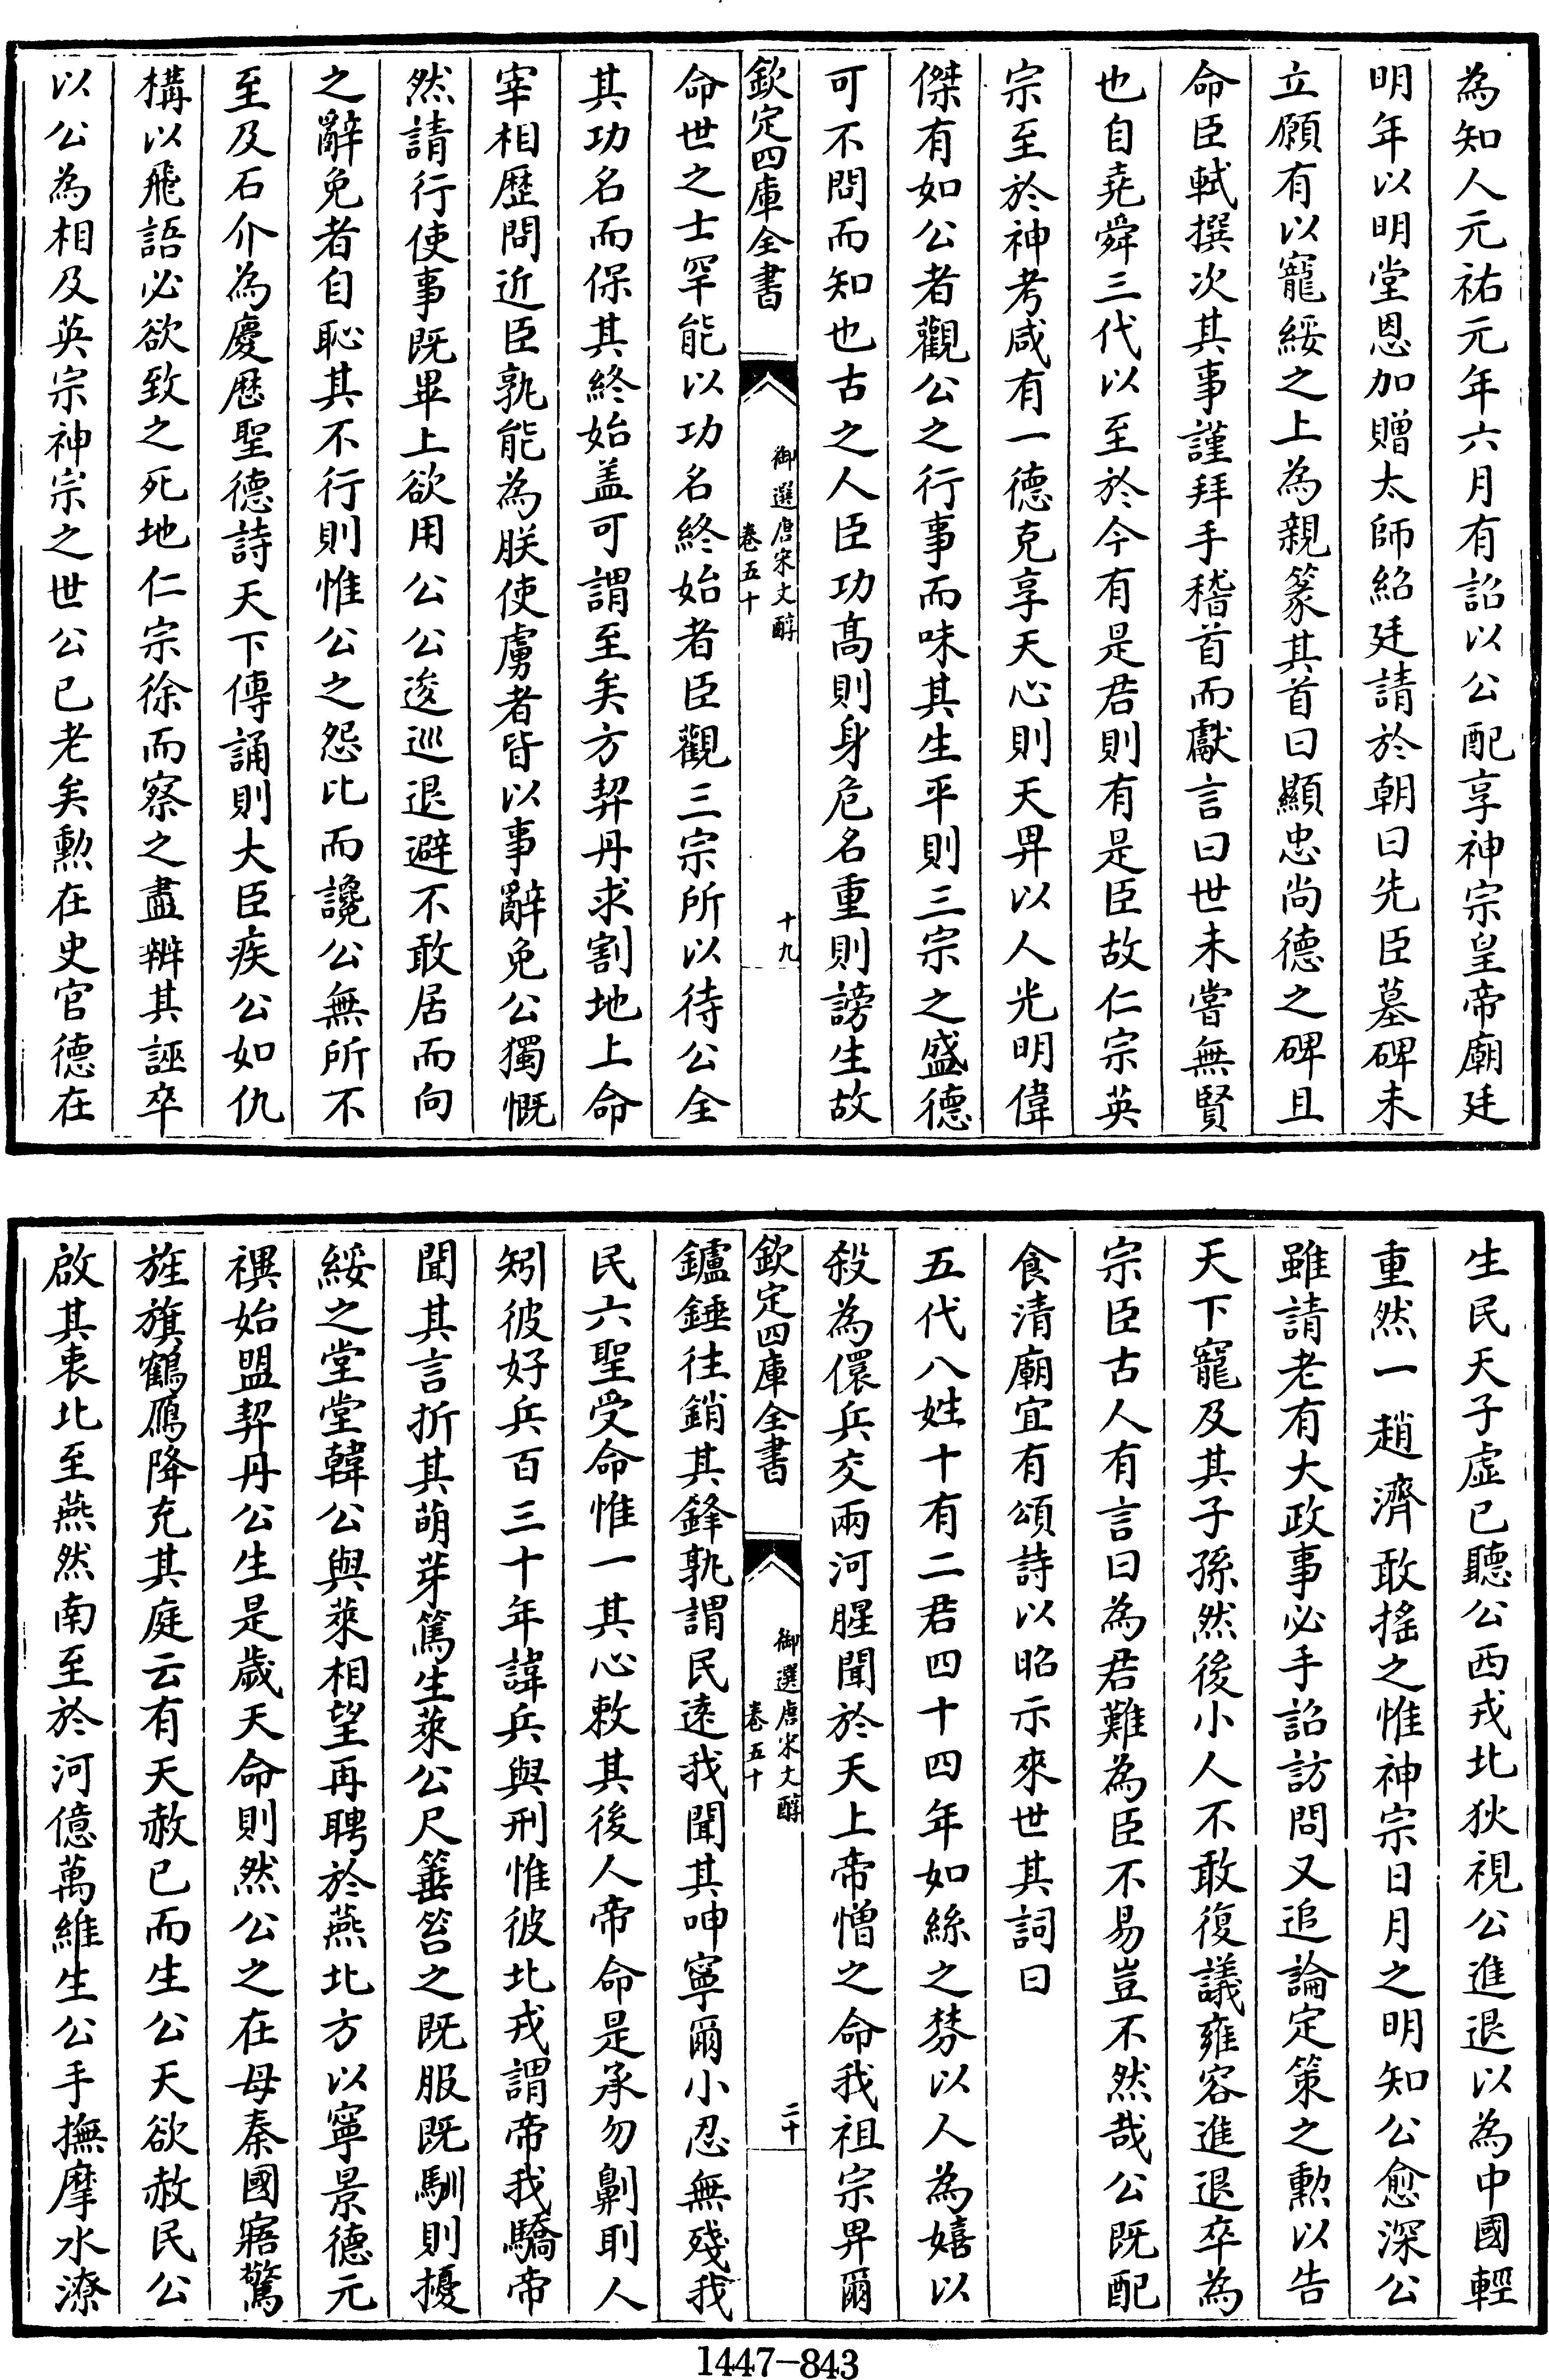 為知人元祐元年六月有詔以公配享神宗皇帝廟廷
明年以明堂恩加贈太師紹廷請於朝曰先臣墓碑未
立願有以寵綏之上為親篆其首曰顯忠尚德之碑且
命臣軾撰次其事謹拜手稽首而獻言曰世未嘗無賢
也自堯舜三代以至於今有是君則有是臣故仁宗英
宗至於神考咸有一德克享天心則天畀以人光明偉
傑有如公者觀公之行事而味其生平則三宗之盛德
可不問而知也古之人臣功高則身危名重則謗生故
欽定四庫全書
御選唐宋文醇
卷五十
十九
命世之士罕能以功名終始者臣觀三宗所以待公全
其功名而保其終始盖可謂至矣方契丹求割地上命
宰相歴問近臣孰能為朕使虜者皆以事辭免公獨慨
然請行使事既畢上欲用公公逡巡退避不敢居而向
之辭免者自恥其不行則惟公之怨比而讒公無所不
至及石介為慶厯聖德詩天下傳誦則大臣疾公如仇
構以飛語必欲致之死地仁宗徐而察之盡辨其誣卒
以公為相及英宗神宗之世公已老矣勲在史官德在
生民天子虚已聽公西戎北狄視公進退以為中國輕
重然一趙濟敢搖之惟神宗日月之明知公愈深公
雖請老有大政事必手詔訪問又追論定策之勲以告
天下寵及其子孫然後小人不敢復議雍容進退卒為
宗臣古人有言曰為君難為臣不易豈不然哉公既配
食清廟宜有頌詩以昭示來世其詞曰
五代八姓十有二君四十四年如絲之棼以人為嬉以
殺為儇兵交兩河腥聞於天上帝憎之命我祖宗畀爾
欽定四庫全書
御選唐宋文醇
卷五十
二十
鑪錘往銷其鋒孰謂民逺我聞其呻寧爾小忍無殘我
民六聖受命惟一其心敕其後人帝命是承勿劓刵人
矧彼好兵百三十年諱兵與刑惟彼北戎謂帝我驕帝
聞其言折其萌芽篤生萊公尺箠笞之既服既馴則擾
綏之堂堂韓公與萊相望再聘於燕北方以寧景德元
禩始盟契丹公生是歲天命則然公之在母秦國寤驚
旌旗鶴鴈降充其庭云有天赦已而生公天欲赦民公
啟其衷北至燕然南至於河億萬維生公手撫摩水潦
1447-843